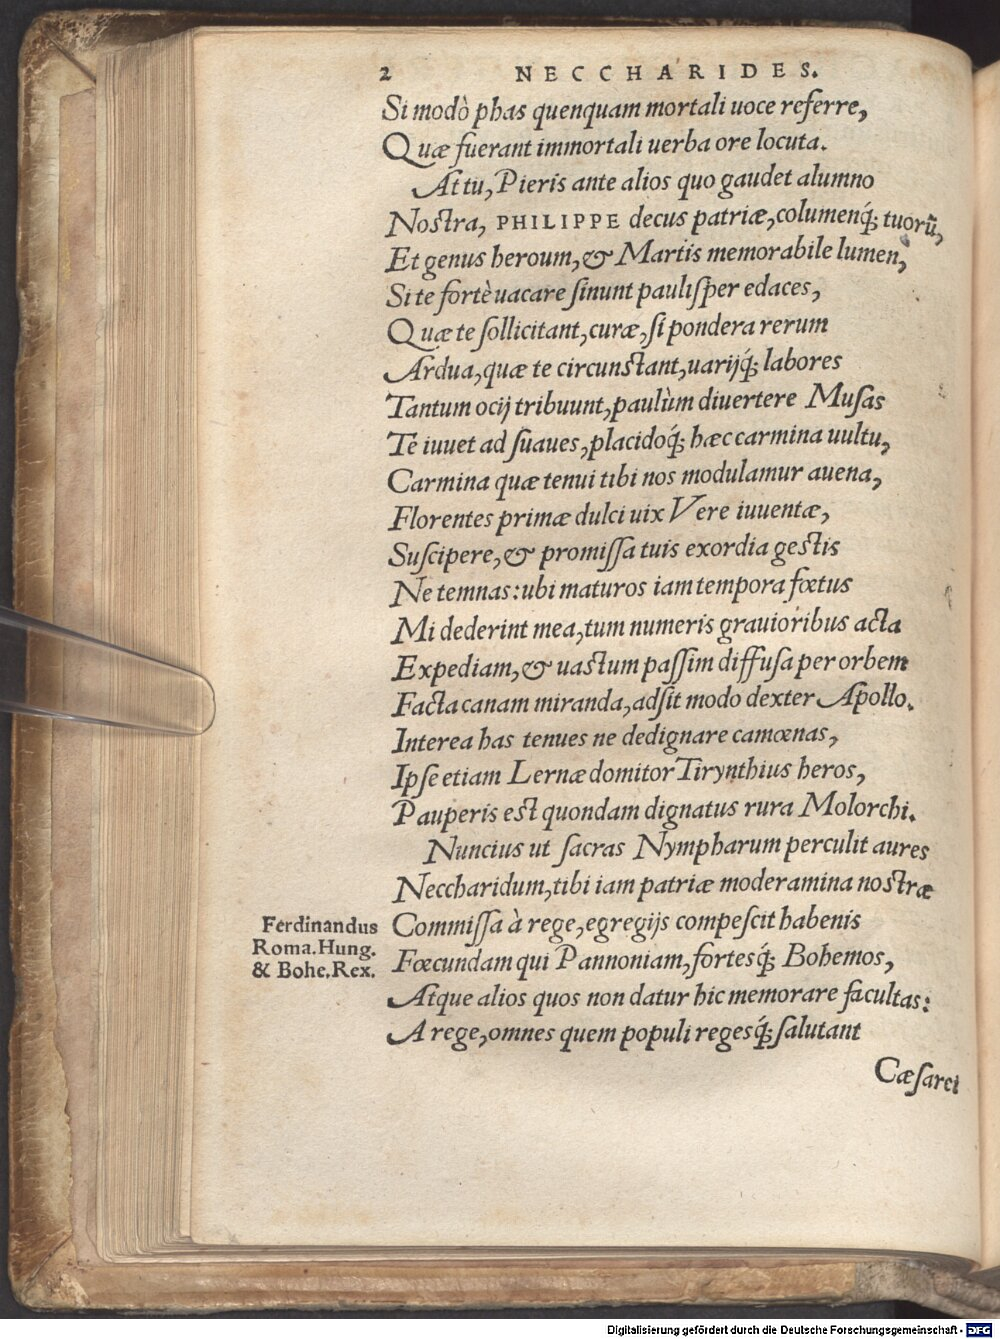 2 NECCHARIDES.
Si modò phas quenquam mortali uoce referre,
Quæ fuerant immortali uerba ore locuta.
At tu, Pieris ante alios quo gaudet alumno
Nostra, PHILIPPE decus patriæ, columenq́; tuorũ,
Et genus heroum, & Martis memorabile lumen,
Si te fortè uacare sinunt paulisper edaces,
Quæ te sollicitant, curæ, si pondera rerum
Ardua, quæ te circunstant, uarijq́; labores
Tantum ocij tribuunt, paulùm diuertere Musas
Te iuuet ad suaues, placidoq́; hæc carmina uultu,
Carmina quæ tenui tibi nos modulamur auena,
Florentes primæ dulci uix Vere iuuentæ,
Suscipere, & promissa tuis exordia gestis
Ne temnas: ubi maturos iam tempora fœtus
Mi dederint mea, tum numeris grauioribus acta
Expediam, & uastum passim diffusa per orbem
Facta canam miranda, adsit modo dexter Apollo.
Interea has tenues ne dedignare camœnas,
Ipse etiam Lernæ domitor Tirynthius heros,
Pauperis est quondam dignatus rura Molorchi.
Nuncius ut sacras Nympharum perculit aures
Neccharidum, tibi iam patriæ moderamina nostræ
Commissa à rege, egregijs compescit habenis
Fœcundam qui Pannoniam, fortesq́; Bohemos,
Atque alios quos non datur hic memorare facultas:
A rege, omnes quem populi regesq́; salutant
Cæsarei
Ferdinandus
Roma. Hung.
& Bohe. Rex.
Digitalisierung gefördert durch die Deutsche Forschungsgemeinschaft - DFG